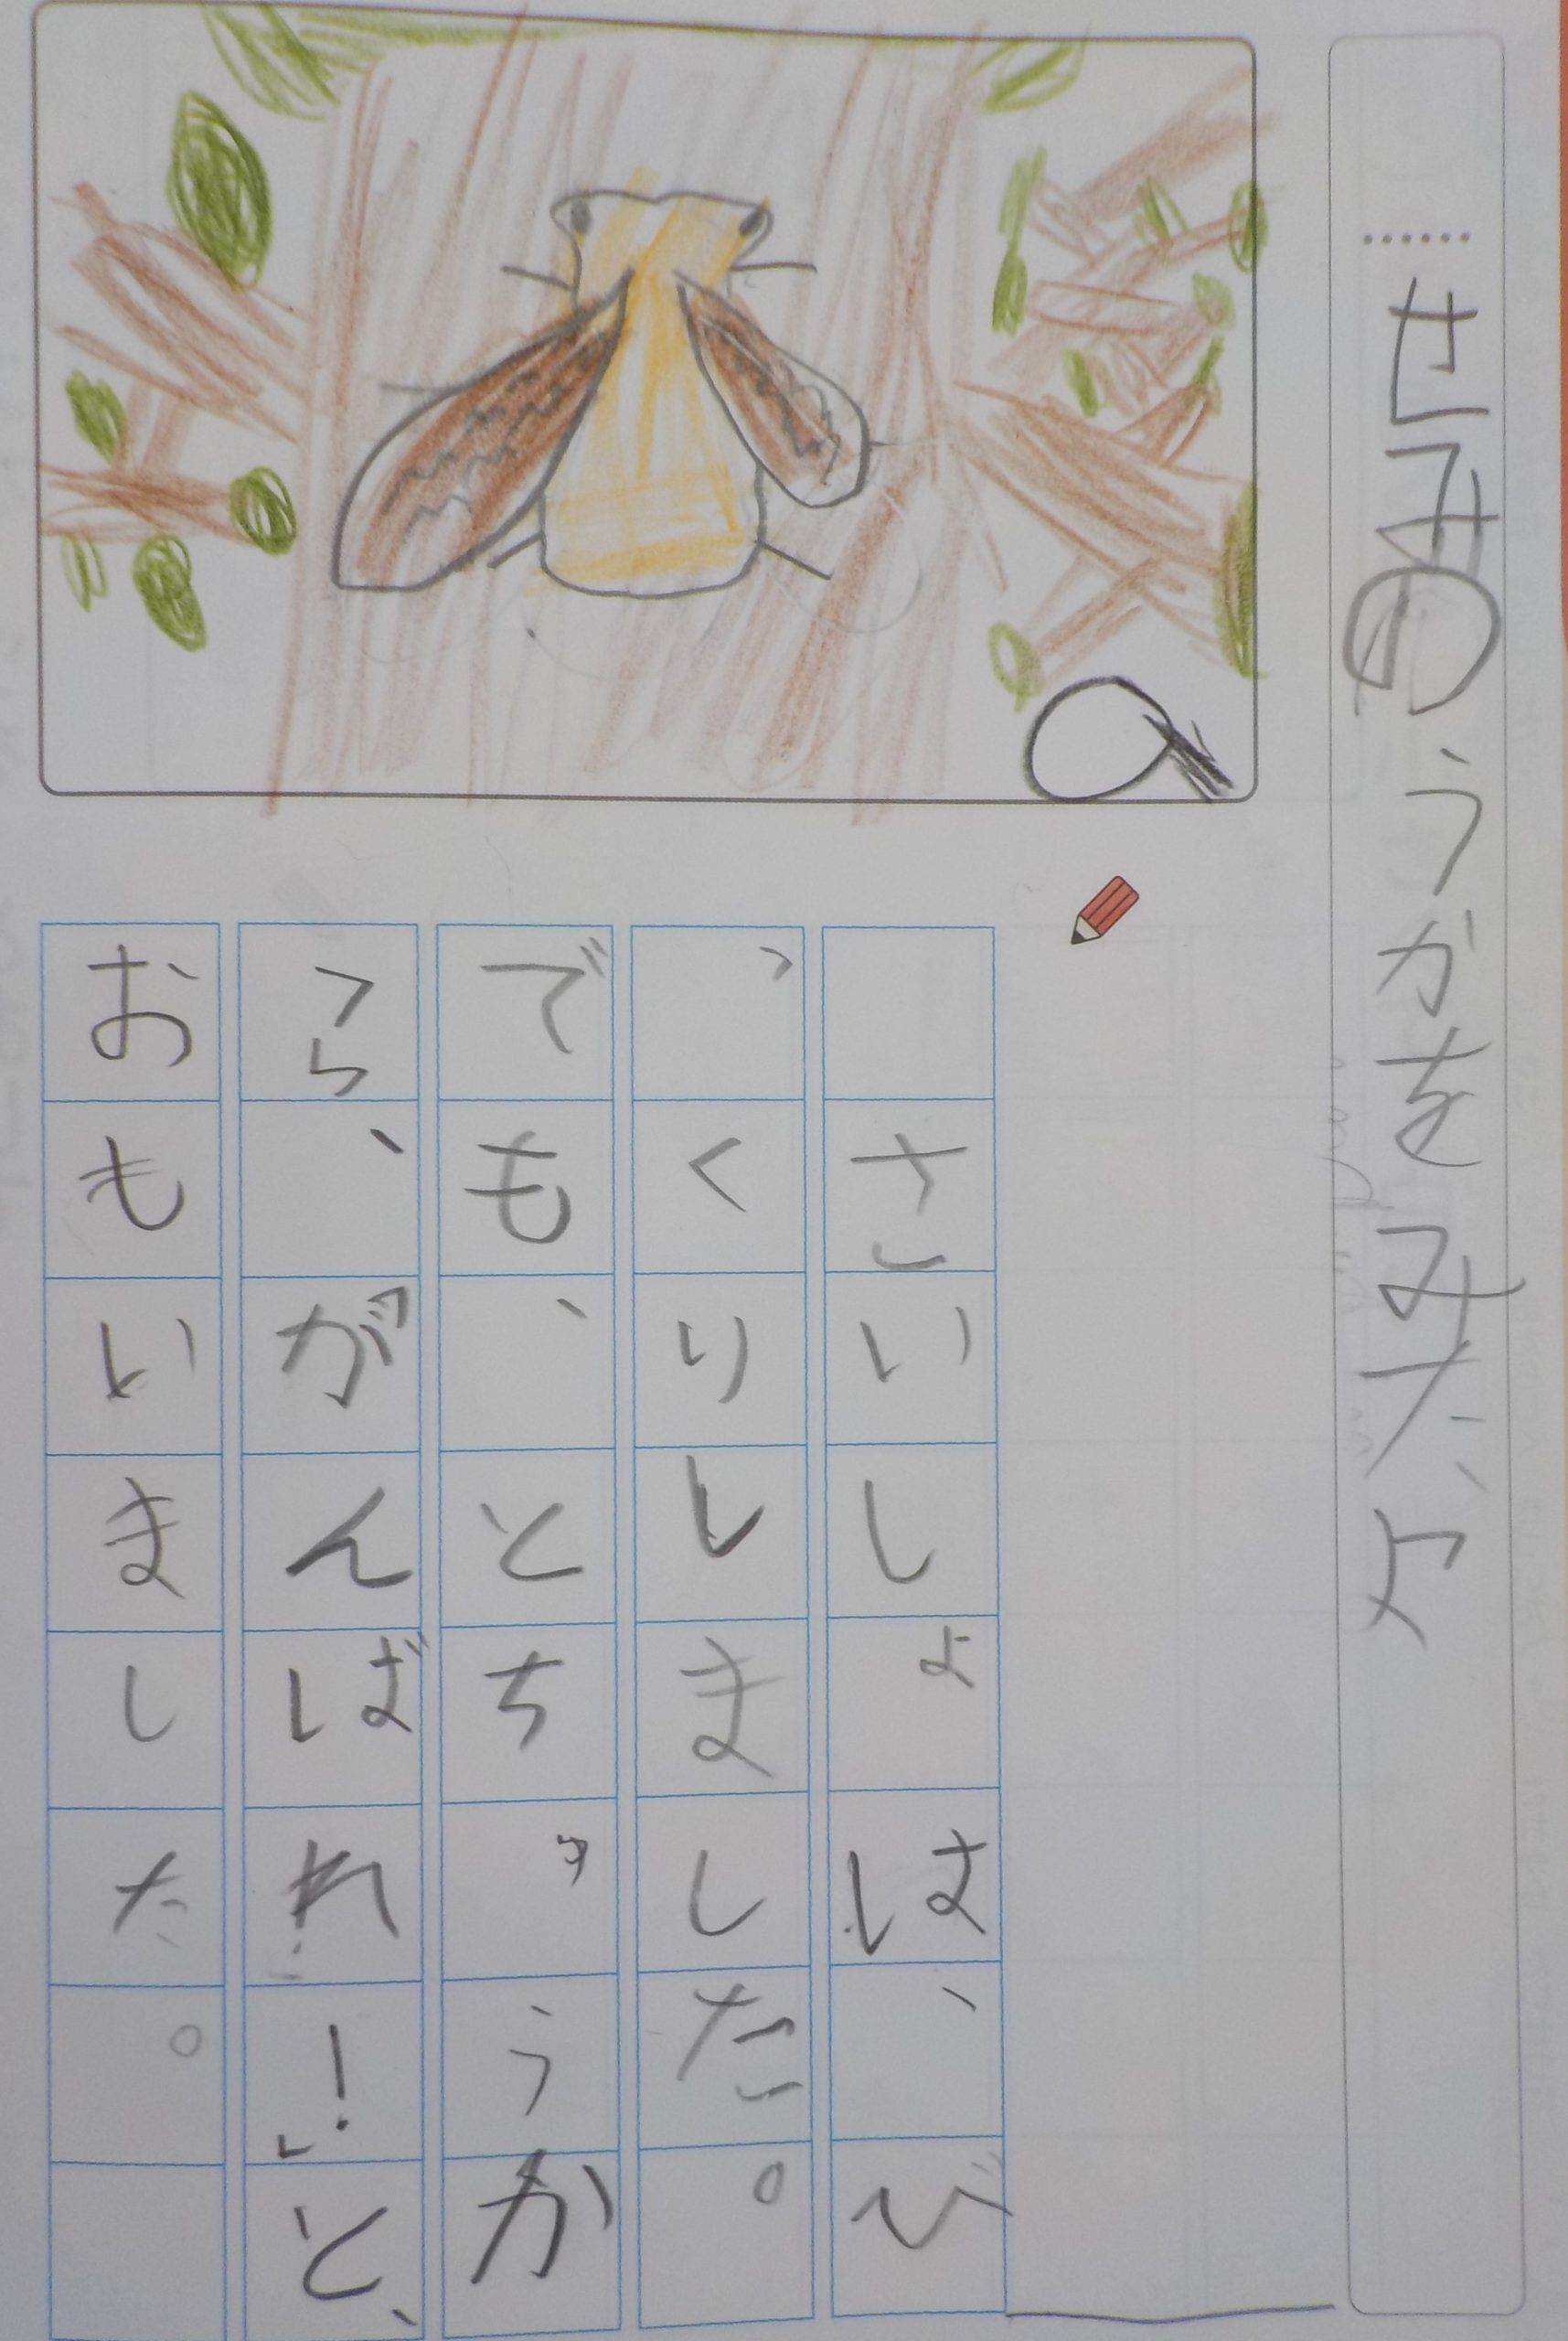 せみのうかをみたよ
さいしょは、び
っくりしました。
でも、とちゅうか
ら、「がんばれ!」と、
おもいました。